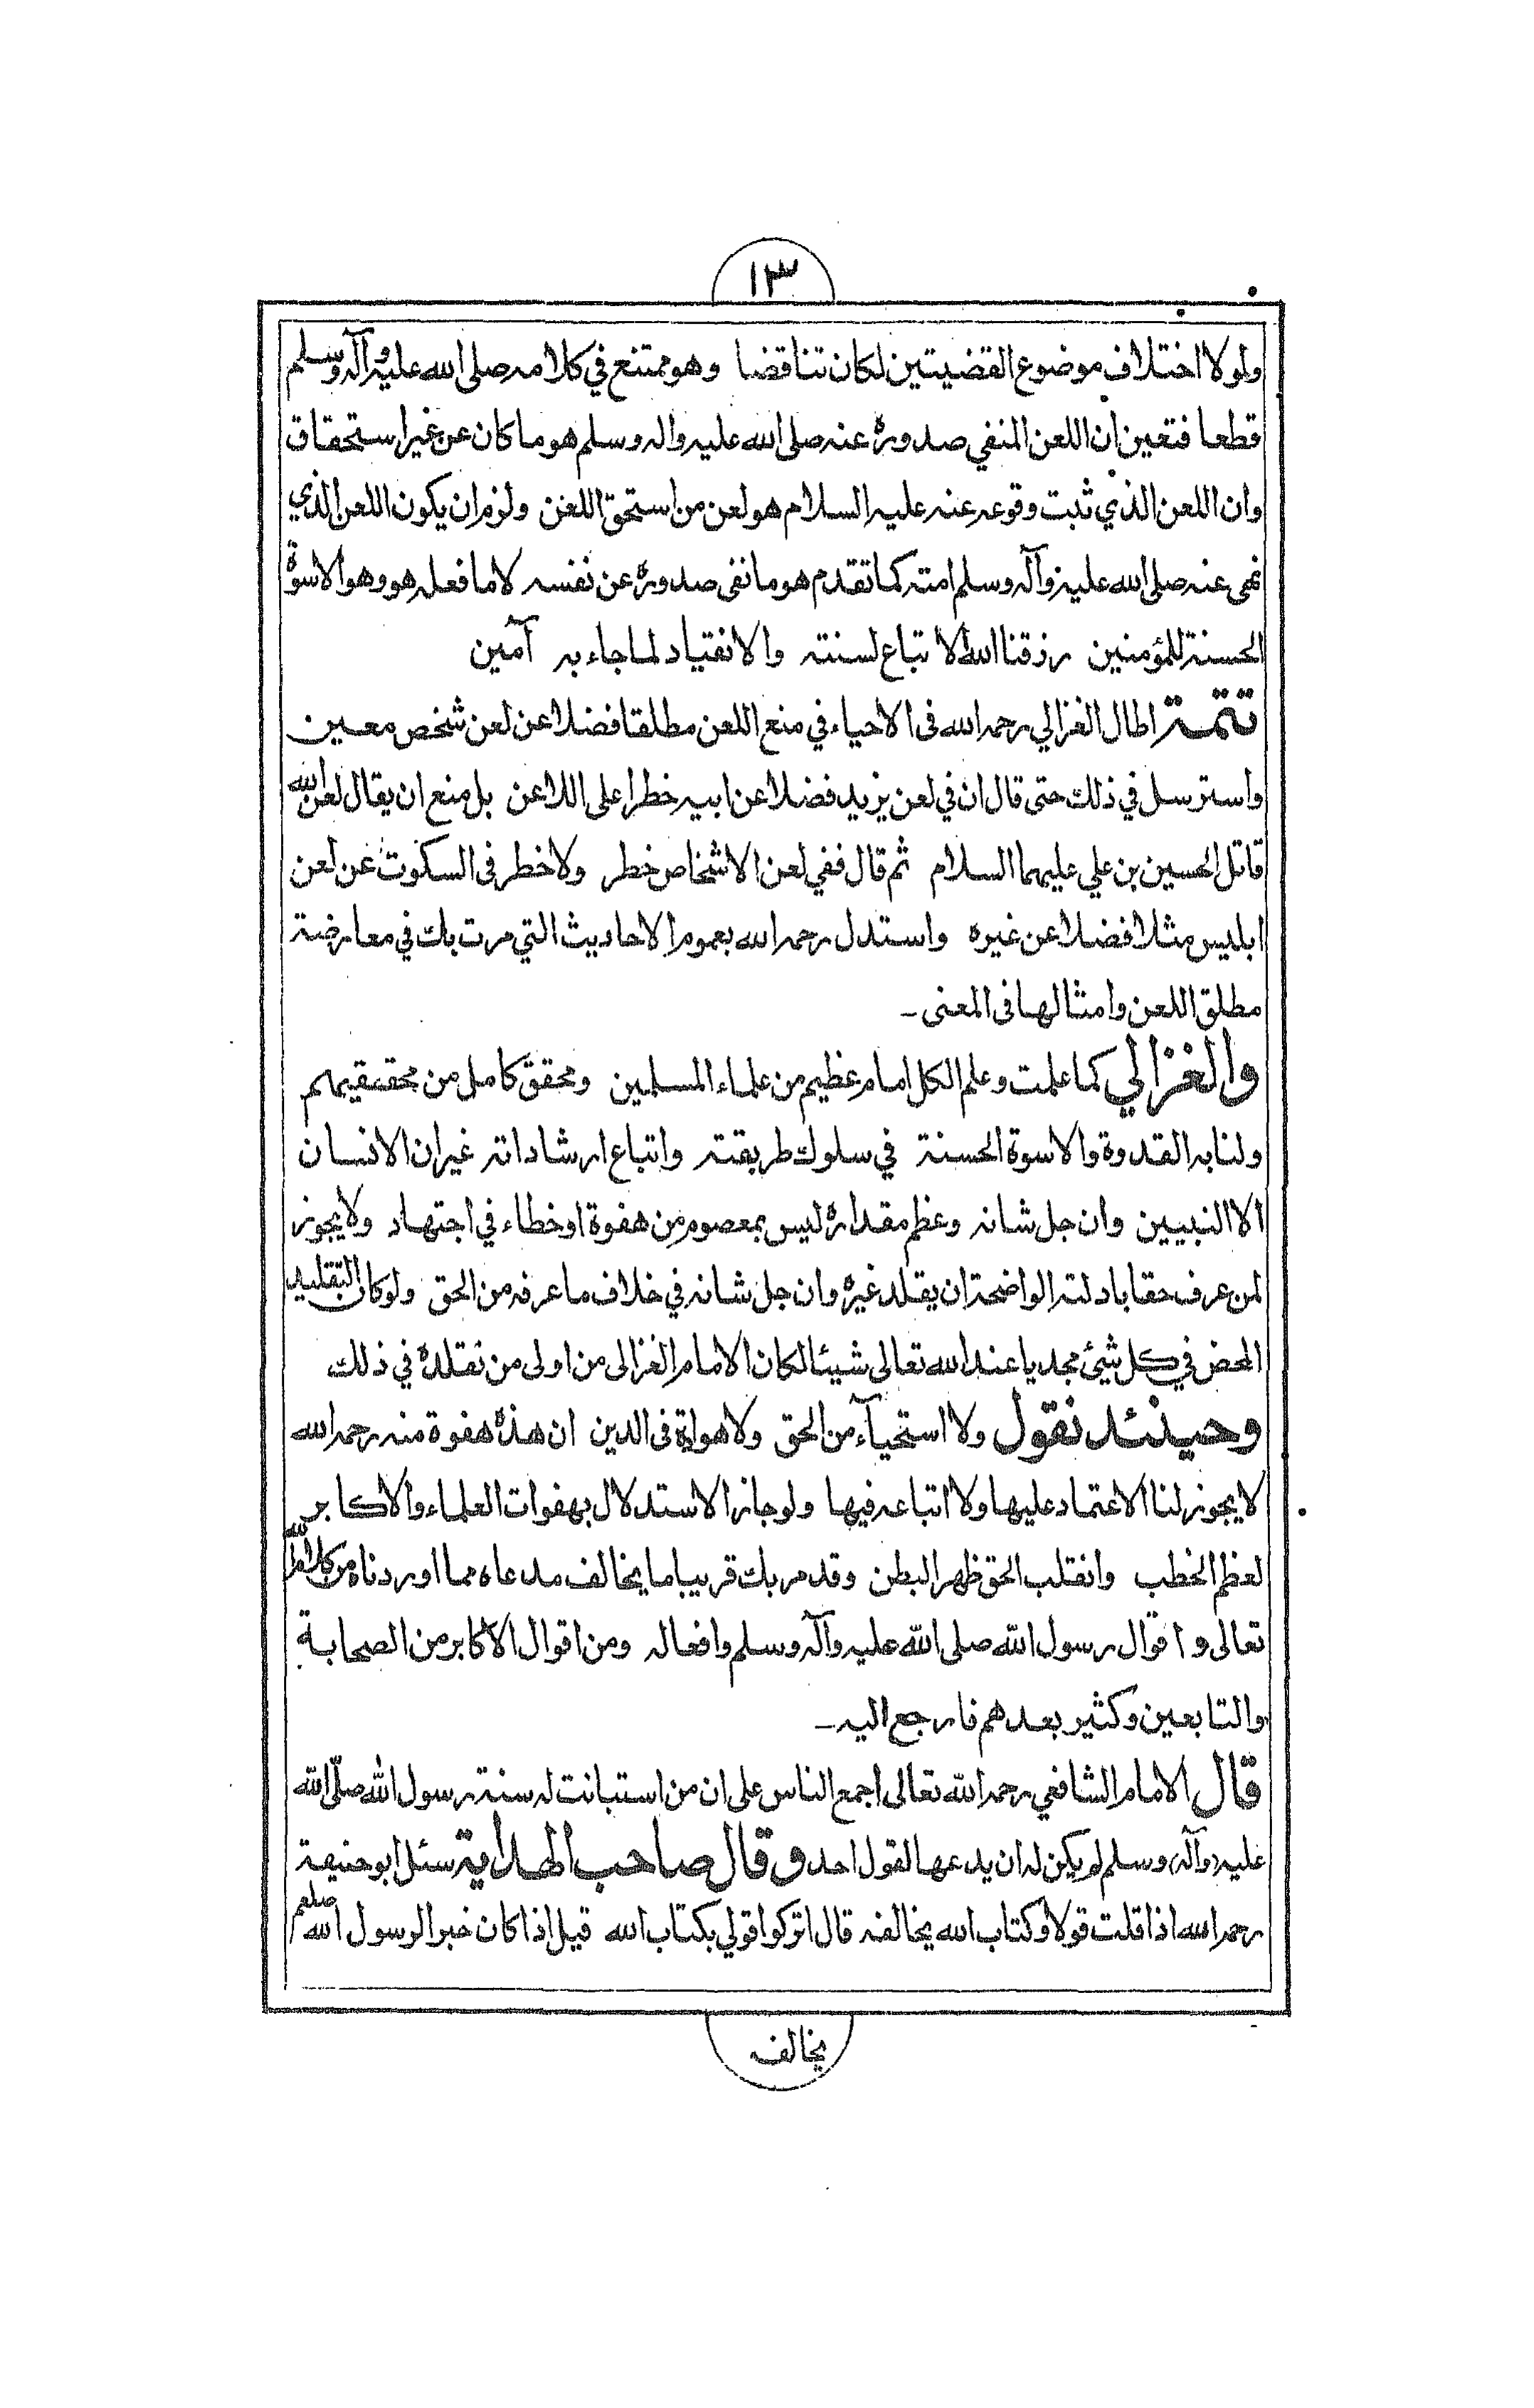 ١٣
ولولا اختلاف موضوع القضيتين لكان تناقضا وهو ممتنع في كلامه صلى الله عليه وآله وسلم
قطعا فتعين ان اللعن المنفي صدوره عنه صلى الله عليه واله وسلم هو ما كان عن غير استحقاق
وان اللعن الذي ثبت وقوعه عنه عليه السلام هو لعن من استحق اللعن ولزم ان يكون اللعن الذي
نهى عنه صلى الله عليه وآله وسلم امته كما تقدم هو ما نفى صدوره عن نفسه لا ما فعله هو وهو الاسوة
الحسنة للمؤمنين رزقنا الله الاتباع لسنته والانقياد لما جاء به آمين
تتمة اطال الغزالي رحمه الله فى الاحياء في منع اللعن مطلقا فضلا عن لعن شخص معين
واسترسل في ذلك حتى قال ان في لعن يزيد فضلا عن ابيه خطرا على اللاعن بل منع ان يقال لعن الله
قاتل الحسين بن علي عليهما السلام ثم قال ففي لعن الاشخاص خطر ولا خطر فى السكوت عن لعن
ابليس مثلا فضلا عن غيره واستدل رحمه الله بعموم الاحاديث التي مرت بك في معارضة
مطلق اللعن وامثالها فى المعنى ـ
والغزالي كما علمت وعلم الكل امام عظيم من علماء المسلمين ومحقق كامل من محققيهم
ولنا به القدوة والاسوة الحسنة في سلوك طريقته واتباع ارشاداته غير ان الانسان
الا النبيين وان جل شانه وعظم مقداره ليس بمعصوم من هفوة او خطاء في اجتهاد ولا يجوز
لمن عرف حقا بادلته الواضحة ان يقلد غيره وان جل شانه في خلاف ما عرفه من الحق ولو كان التقليد
المحض في كل شيئ مجديا عند الله تعالى شيئا لكان الامام الغزالى من اولى من نقلده في ذلك
وحينئذ نقول ولا استحياء من الحق ولا هوادة فى الدين ان هذه هفوة منه رحمه الله
لا يجوز لنا الاعتماد عليها ولا اتباعه فيها ولو جاز الاستدلال بهفوات العلماء والاكابر
لعظم الخطب وانقلب الحق ظهر البطن وقد مر بك قريبا ما يخالف مدعاه مما اوردناه من كلام الله
تعالى و اقوال رسول الله صلى الله عليه وآله وسلم وافعاله ومن اقوال الاكابر من الصحابة
والتابعين وكثير بعدهم فارجع اليه ـ
قال الامام الشافعي رحمه الله تعالى اجمع الناس على ان من استبانت له سنة رسول الله صلى الله
عليه (وآله) وسلم لم يكن له ان يدعها لقول احد و قال صاحب الهداية سئل ابو حنيفة
رحمه الله اذا قلت قولا وكتاب الله يخالفه قال اتركوا قولي بكتاب الله قيل اذا كان خبر الرسول الله صلعم
يخالف